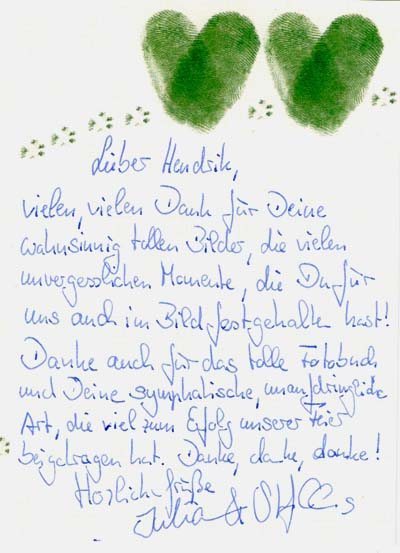 Lieber Hendrik,
vielen, vielen Dank für Deine
wahnsinnig tollen Bilder, die vielen
unvergesslichen Momente, die Du für
uns auch im Bild festgehalten hast!
Danke auch für das tolle Fotobuch
und Deine symphatische, unaufdringliche
Art, die viel zum Erfolg unserer Feier
beigetragen hat. Danke, danke, danke!
Herzliche Grüße
Julia &